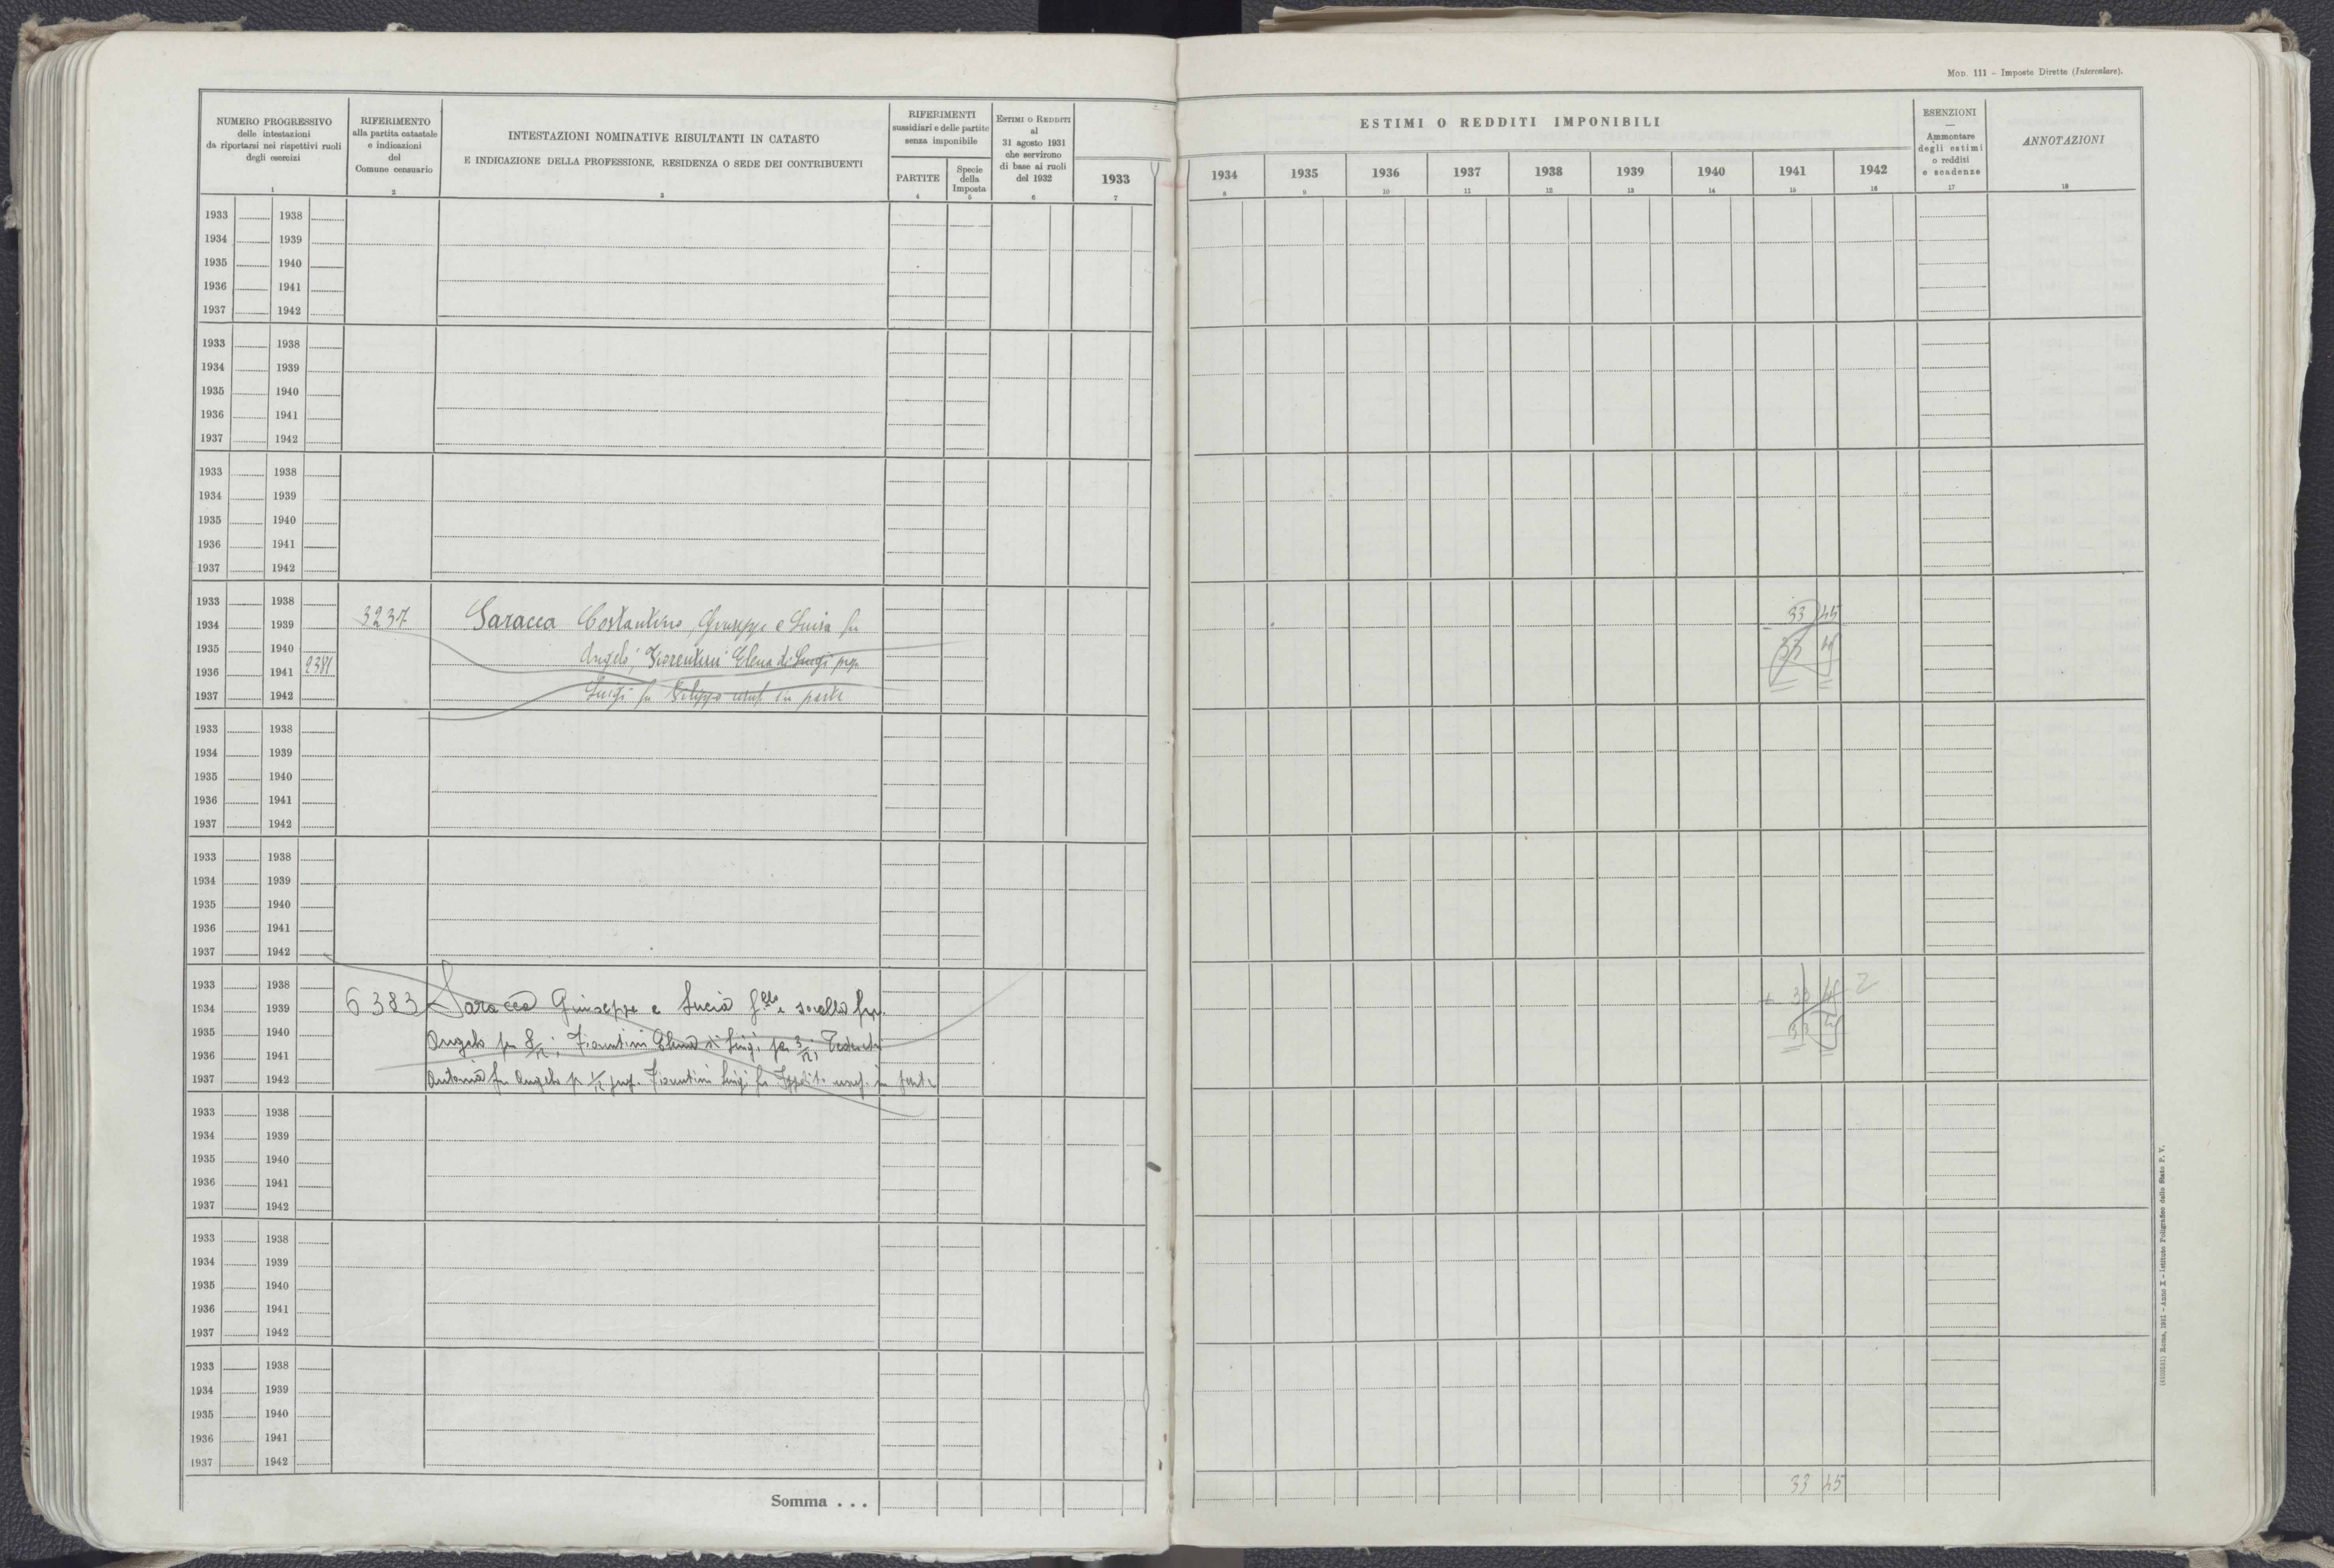 MOD. 111 – Imposte Dirette (Intercalare).
NUMERO PROGRESSIVO
delle intestazioni
da riportarsi nei rispettivi ruoli
degli esercizi
1
RIFERIMENTO
alla partita catastale
e indicazioni
del
Comune censuario
2
INTESTAZIONI NOMINATIVE RISULTANTI IN CATASTO
E INDICAZIONE DELLA PROFESSIONE, RESIDENZA O SEDE DEI CONTRIBUENTI
3
RIFERIMENTI
sussidiari e delle partite
senza imponibile
PARTITE
4
Specie
della
Imposta
5
ESTIMI O REDDITI
al
31 agosto 1931
che servirono
di base ai ruoli
del 1932
6
1933
7
ESTIMI O REDDITI IMPONIBILI
1934 1935 1936 1937 1938 1939 1940 1941 1942
8 9 10 11 12 13 14 15 16
ESENZIONI
—
Ammontare
degli estimi
o redditi
e scadenze
17
ANNOTAZIONI
18
1933 1938
1934 1939
1935 1940
1936 1941
1937 1942
1933 1938
1934 1939
1935 1940
1936 1941
1937 1942
1933 1938
1934 1939
1935 1940
1936 1941
1937 1942
1933 1938
1934 1939 3237 Saracca Costantino, Giuseppe e Luisa fu 33 45
1935 1940 Angelo, Fiorentini Elena di Luigi prop.
1936 1941 33 45
1937 1942 Luigi fu Filippo usuf. in parte
1933 1938
1934 1939
1935 1940
1936 1941
1937 1942
1933 1938
1934 1939
1935 1940
1936 1941
1937 1942
1933 1938
1934 1939 6383 Saracca Giuseppe e Lucia f.lli e sorella fu + 33 45 2
1935 1940 Angelo per 8/12; Fiorentini Elena di Luigi per 3/12; 33 45
1936 1941
1937 1942 Antonia fu Angelo p 1/12 prop. Fiorentini Luigi fu Ippolito usuf. in parte
1933 1938
1934 1939
1935 1940
1936 1941
1937 1942
1933 1938
1934 1939
1935 1940
1936 1941
1937 1942
1933 1938
1934 1939
1935 1940
1936 1941
1937 1942
Somma . . . 33 45
(4103581) Roma, 1931 – Anno X – Istituto Poligrafico dello Stato P. V.